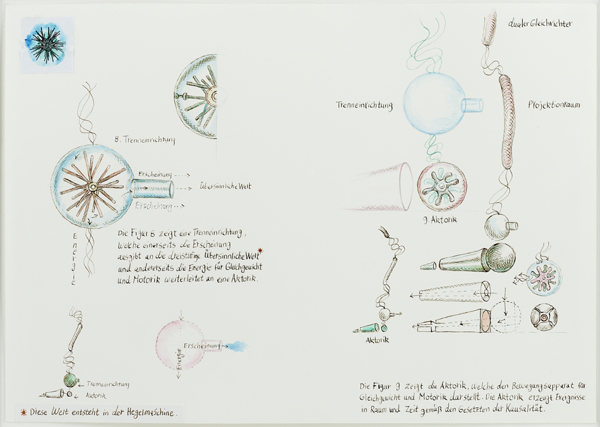 dualer Gleichrichter
Trenneinrichtung
Projektionsraum
8. Trenneinrichtung
Erscheinung
Übersinnliche Welt
Erscheinung
Energie
9. Aktorik
Die Figur 8 zeigt eine Trenneinrichtung,
welche einerseits die Erscheinung
ausgibt an die dreistufige Übersinnliche Welt*
und andererseits die Energie für Gleichgewicht
und Motorik weiterleitet an eine Aktorik.
Erscheinung
Energie
Aktorik
Trenneinrichtung
Aktorik
* Diese Welt entsteht in der Hegelmaschine.
Die Figur 9 zeigt die Aktorik, welche den Bewegungsapparat für
Gleichgewicht und Motorik darstellt. Die Aktorik erzeugt Ereignisse
in Raum und Zeit gemäß den Gesetzten der Kausalität.